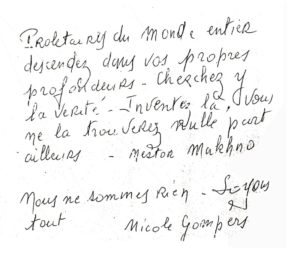 Proletaires du monde entier
descendez dans vos propres
profondeurs - Cherchez y
la verité - Inventez la, vous
ne la trouverez nulle part
ailleurs - Nestor Makhno
Nous ne sommes rien - Soyons
tout Nicole Gompers